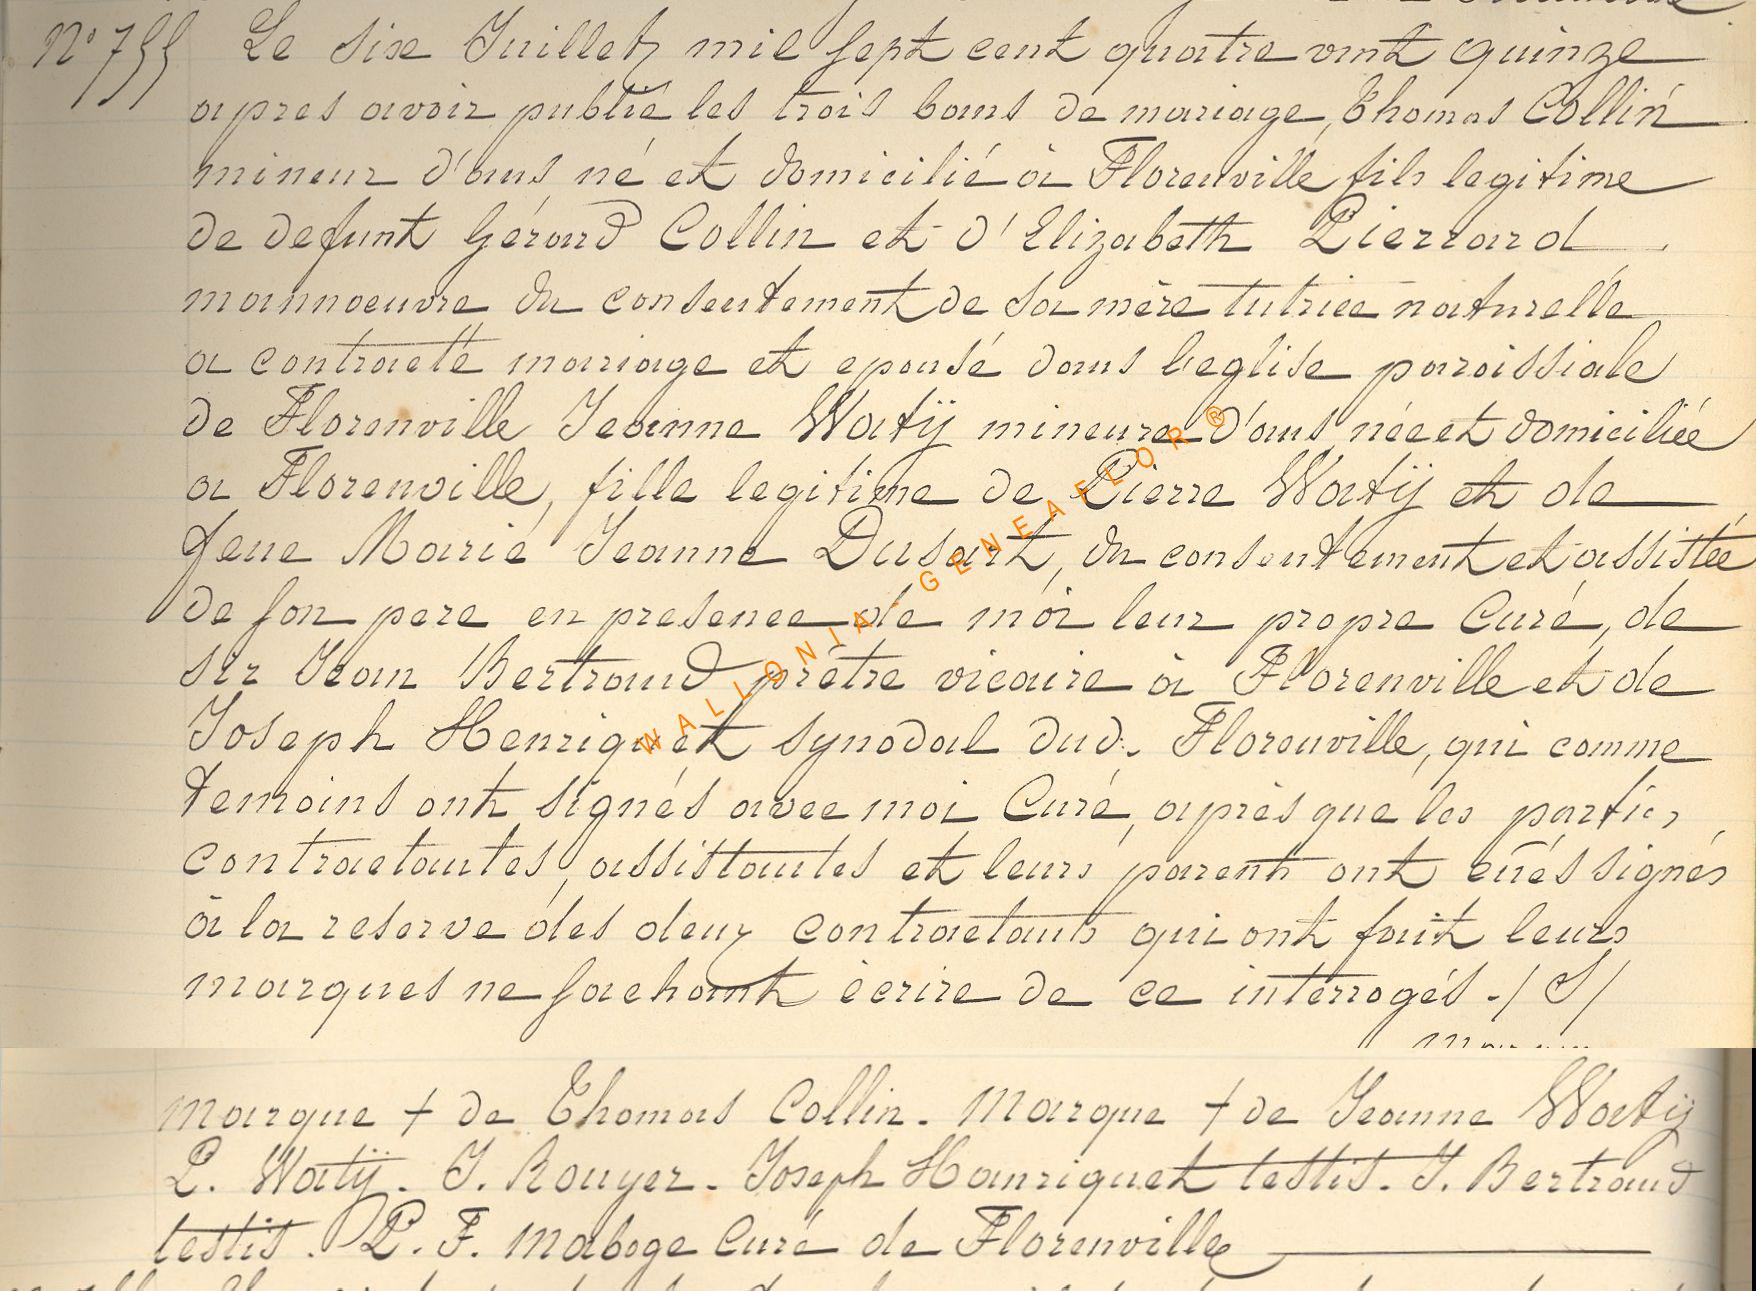 N° 755 Le six Juillet mil sept cent quatre vint quinze
apres avoir publié les trois bans de mariage, Thomas Collin
mineur d'ans né et domicilié à Florenville fils legitime
de defunt Gérard Collin et d'Elizabeth Pierrard
mannoeuvre du consentement de sa mère tutrice naturelle
a contracté mariage et epousé dans l'eglise paroissiale
de Florenville Jeanne Watÿ mineure d'ans née et domiciliée
a Florenville, fille legitime de Pierre Watÿ et de
feue Marie Jeanne Dusart, du consentement et assistée
de son pere en presence de moi leur propre Curé, de
sir Jean Bertrand prêtre vicaire à Florenville et de
Joseph Henriquet synodal dud. Florenville, qui comme
temoins ont signés avec moi Curé, après que les parties
contractantes, assistantes et leurs parents ont eûés signés
à la reserve des deux contractants qui ont fait leurs
marques ne sachant écrire de ce interrogés ./S/
marque + de Thomas Collin. Marque + de Jeanne Watÿ
P. Watÿ. J. Rouyer. Joseph Hanriquet testis. J. Bertrand
testis. P. F. Maboge Curé de Florenville
WALLONIA GENEAFLOR ®